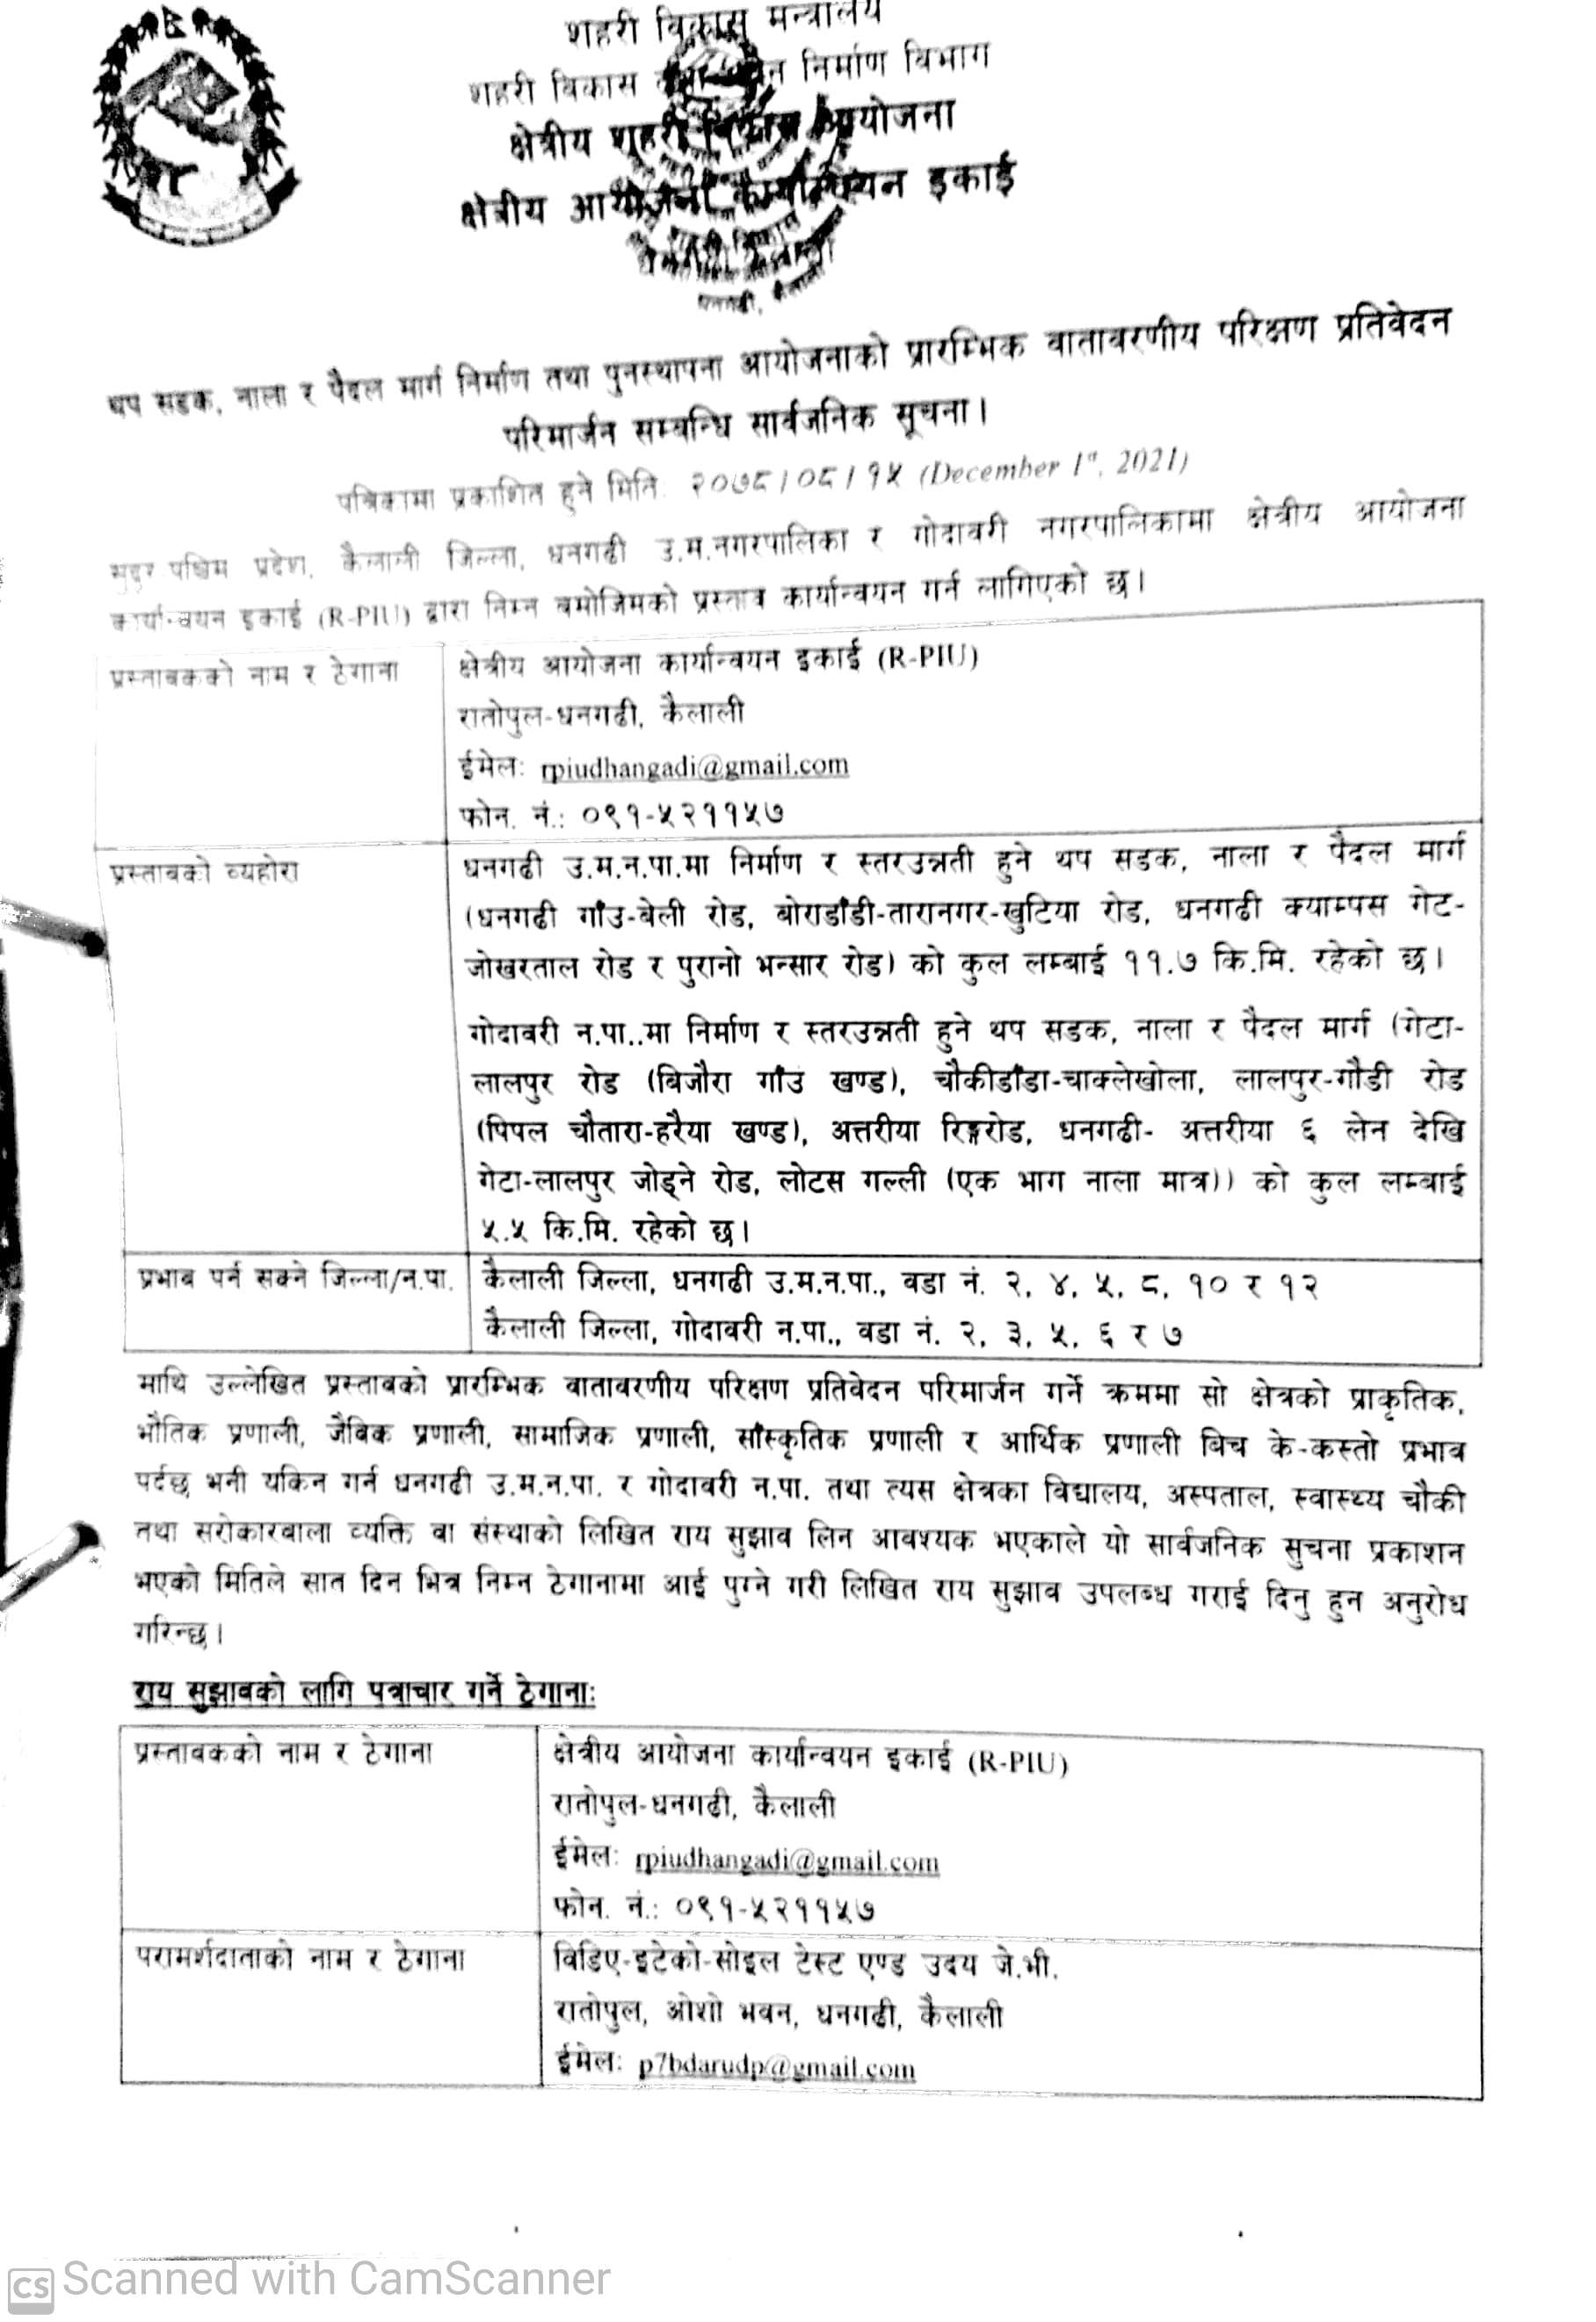 शहरी विकास मन्त्रालय
शहरी विकास तथा भवन निर्माण विभाग
क्षेत्रीय शहरी विकास आयोजना
क्षेत्रीय आयोजना कार्यान्वयन इकाई
धनगढी, कैलाली
थप सडक, नाला र पैदल मार्ग निर्माण तथा पुनस्थापना आयोजनाको प्रारम्भिक वातावरणीय परिक्षण प्रतिवेदन
परिमार्जन सम्बन्धि सार्वजनिक सूचना।
पत्रिकामा प्रकाशित हुने मिति: २०७८।०८।१५ (December 1st, 2021)
सुदुर पश्चिम प्रदेश, कैलाली जिल्ला, धनगढी उ.म.नगरपालिका र गोदावरी नगरपालिकामा क्षेत्रीय आयोजना
कार्यान्वयन इकाई (R-PIU) द्वारा निम्न बमोजिमको प्रस्ताव कार्यान्वयन गर्न लागिएको छ।
प्रस्तावकको नाम र ठेगाना
क्षेत्रीय आयोजना कार्यान्वयन इकाई (R-PIU)
रातोपुल-धनगढी, कैलाली
ईमेल: rpiudhangadi@gmail.com
फोन. नं.: ०९१-५२११५७
प्रस्तावको व्यहोरा
धनगढी उ.म.न.पा.मा निर्माण र स्तरउन्नती हुने थप सडक, नाला र पैदल मार्ग
(धनगढी गाँउ-बेली रोड, बोराडाँडी-तारानगर-खुटिया रोड, धनगढी क्याम्पस गेट-
जोखरताल रोड र पुरानो भन्सार रोड) को कुल लम्बाई ११.७ कि.मि. रहेको छ।
गोदावरी न.पा..मा निर्माण र स्तरउन्नती हुने थप सडक, नाला र पैदल मार्ग (गेटा-
लालपुर रोड (बिजौरा गाँउ खण्ड), चौकीडाँडा-चाक्लेखोला, लालपुर-गौडी रोड
(पिपल चौतारा-हरैया खण्ड), अत्तरीया रिङ्गरोड, धनगढी- अत्तरीया ६ लेन देखि
गेटा-लालपुर जोड्ने रोड, लोटस गल्ली (एक भाग नाला मात्र)) को कुल लम्बाई
५.५ कि.मि. रहेको छ।
प्रभाव पर्न सक्ने जिल्ला/न.पा.
कैलाली जिल्ला, धनगढी उ.म.न.पा., वडा नं. २, ४, ५, ८, १० र १२
कैलाली जिल्ला, गोदावरी न.पा., वडा नं. २, ३, ५, ६ र ७
माथि उल्लेखित प्रस्तावको प्रारम्भिक वातावरणीय परिक्षण प्रतिवेदन परिमार्जन गर्ने क्रममा सो क्षेत्रको प्राकृतिक,
भौतिक प्रणाली, जैविक प्रणाली, सामाजिक प्रणाली, साँस्कृतिक प्रणाली र आर्थिक प्रणाली बिच के-कस्तो प्रभाव
पर्दछ भनी यकिन गर्न धनगढी उ.म.न.पा. र गोदावरी न.पा. तथा त्यस क्षेत्रका विद्यालय, अस्पताल, स्वास्थ्य चौकी
तथा सरोकारवाला व्यक्ति वा संस्थाको लिखित राय सुझाव लिन आवश्यक भएकाले यो सार्वजनिक सुचना प्रकाशन
भएको मितिले सात दिन भित्र निम्न ठेगानामा आई पुग्ने गरी लिखित राय सुझाव उपलब्ध गराई दिनु हुन अनुरोध
गरिन्छ।
राय सुझावको लागि पत्राचार गर्ने ठेगाना:
प्रस्तावकको नाम र ठेगाना
क्षेत्रीय आयोजना कार्यान्वयन इकाई (R-PIU)
रातोपुल-धनगढी, कैलाली
ईमेल: rpiudhangadi@gmail.com
फोन. नं.: ०९१-५२११५७
परामर्शदाताको नाम र ठेगाना
विडिए-इटेको-सोइल टेस्ट एण्ड उदय जे.भी.
रातोपुल, ओशो भवन, धनगढी, कैलाली
ईमेल: p7bdarudp@gmail.com
CS Scanned with CamScanner